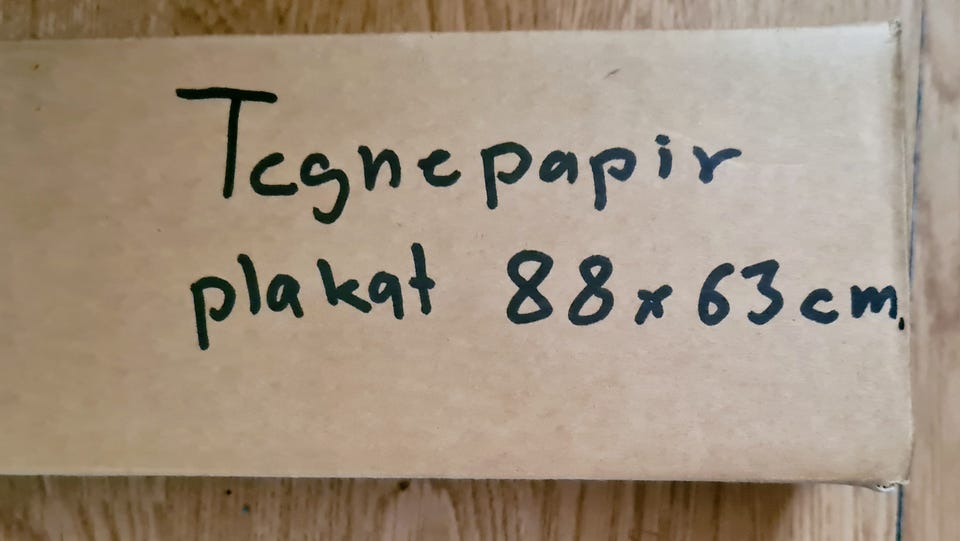 Tegnepapir
plakat 88x63cm.